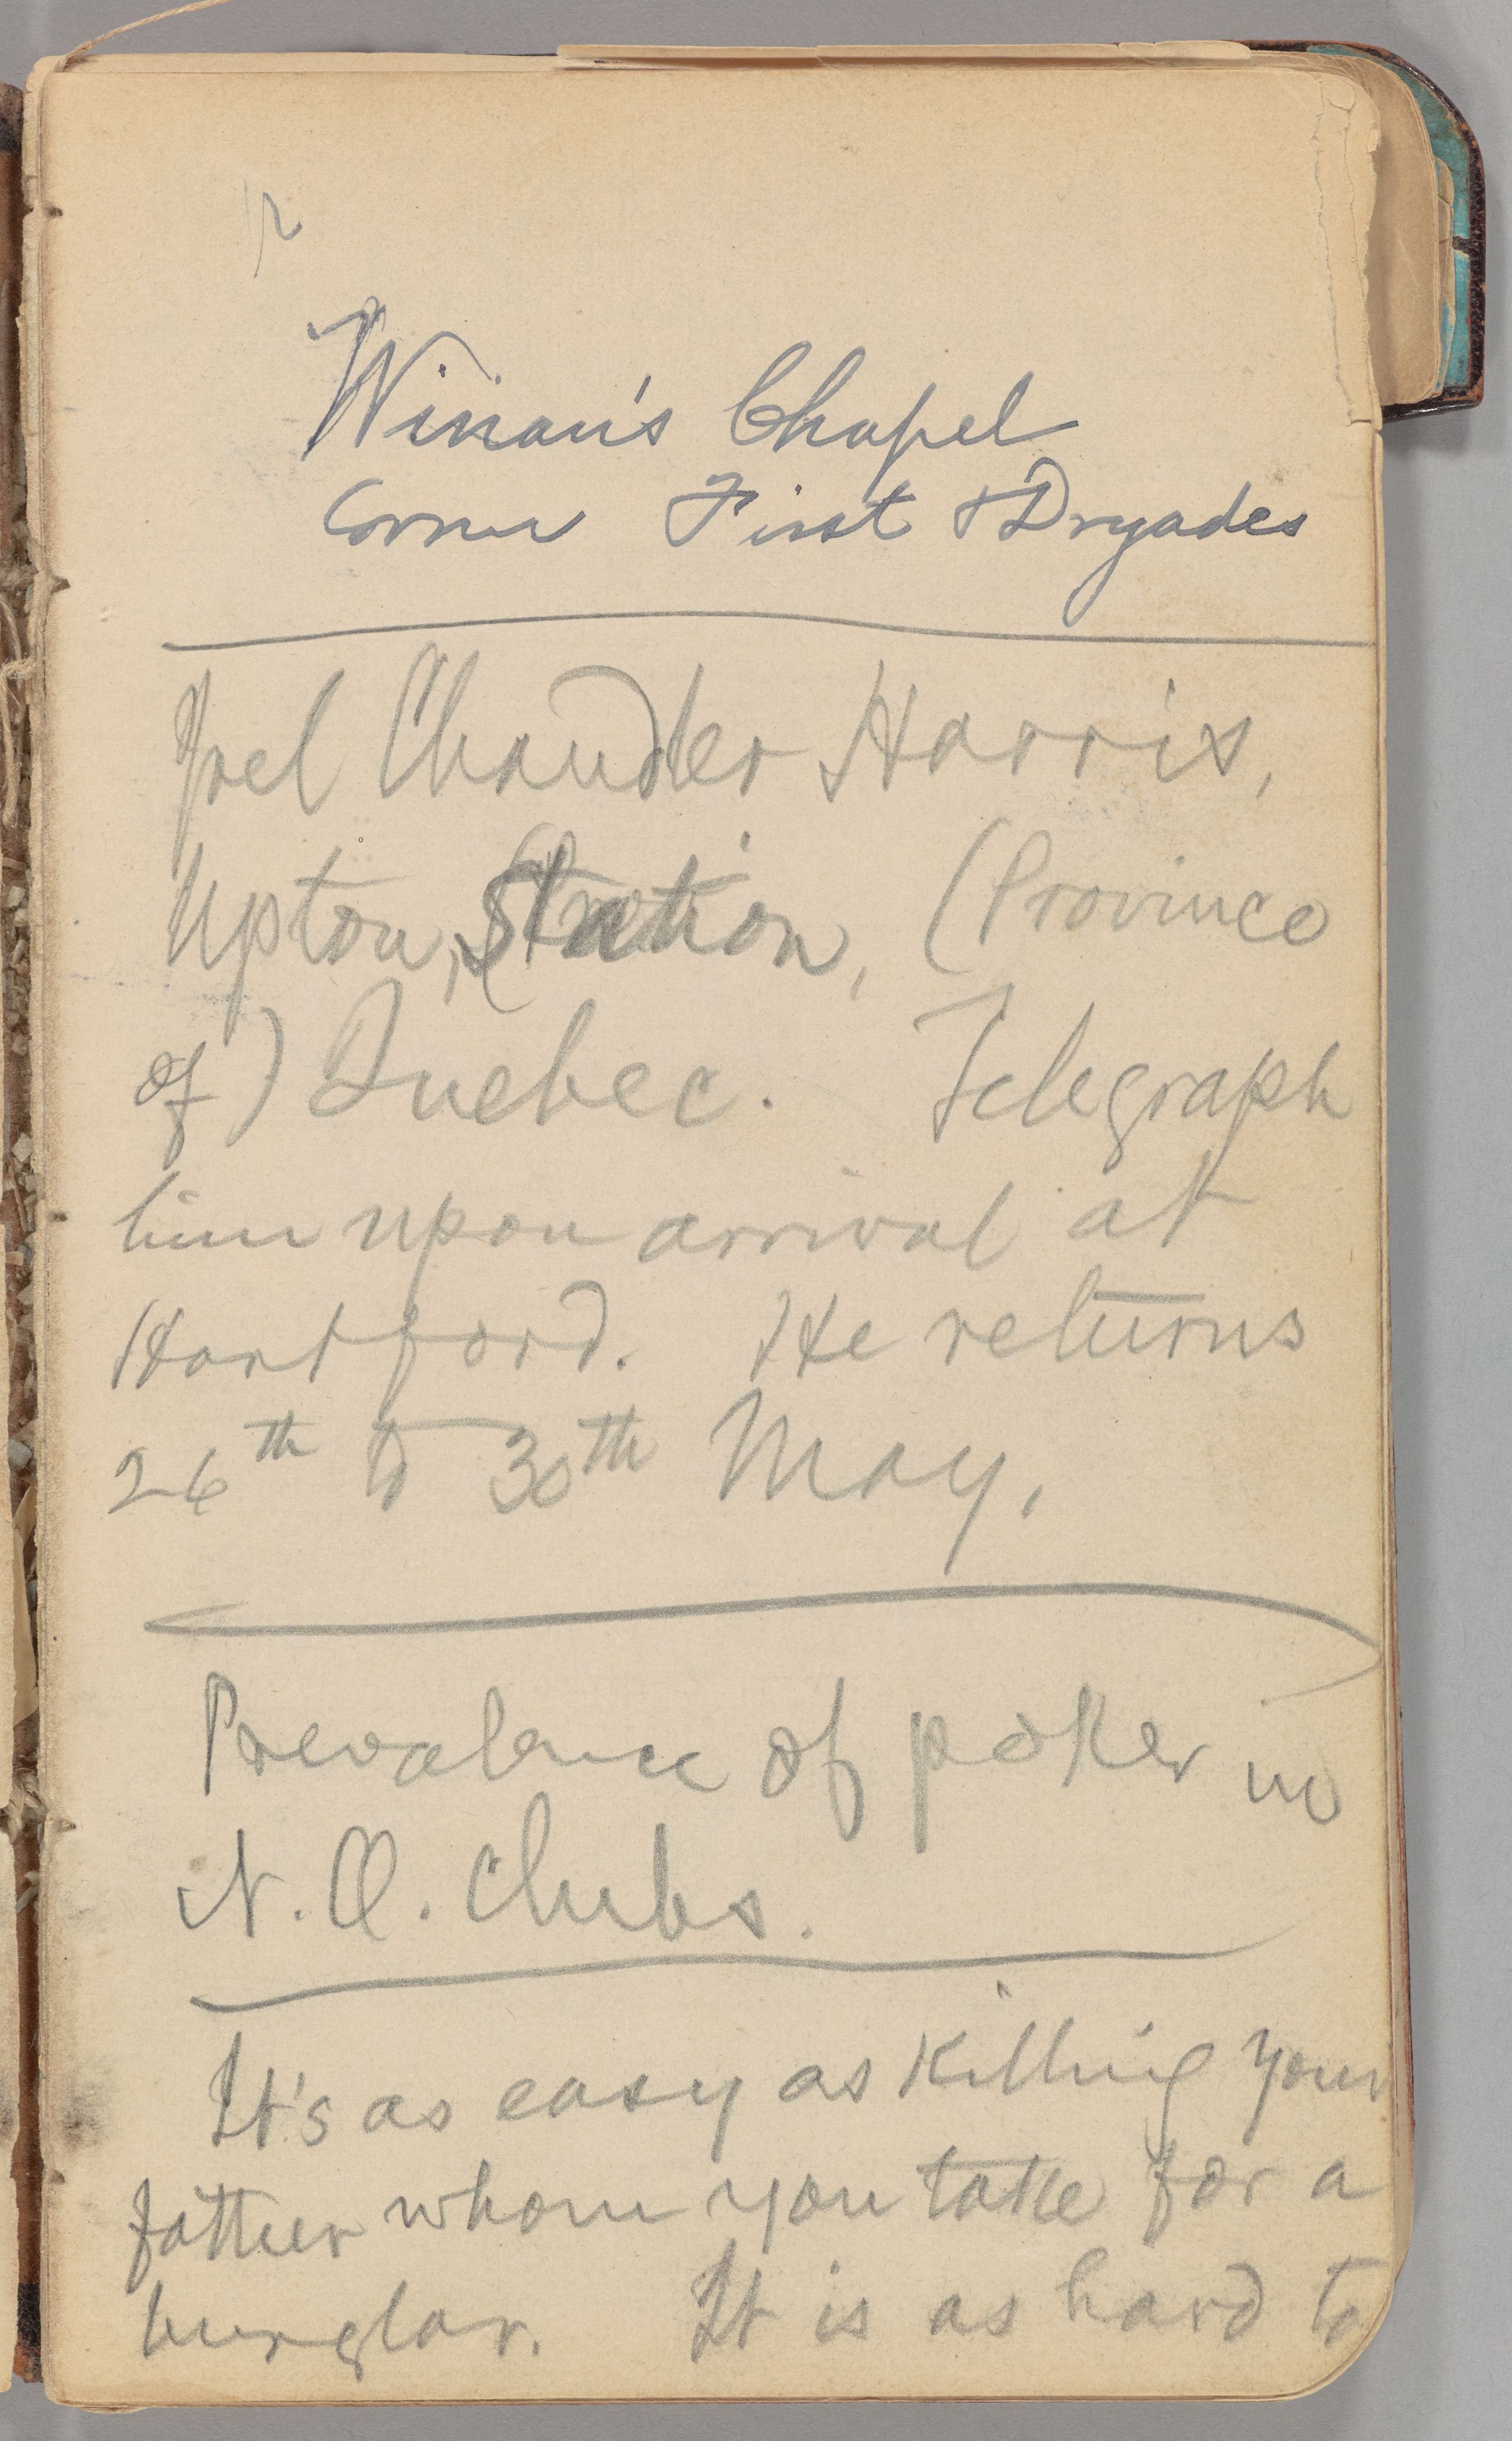 Winan's Chapel
Corner First & Dryades
Joel Chandler Harris,
Upton, Station, (Province
of) Quebec. Telegraph
him upon arrival at
Hartford. He returns
26th to 30th May.
Prevalence of poker in
N. O. Clubs.
It's as easy as killing your
father whom you take for a
burglar. It is as hard to